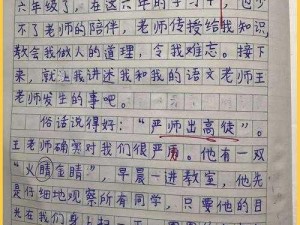 六年级了，在这六年的学习中，也少
不了老师的陪伴，老师传授给我知识
教会我做人的道理，令我难忘。接下
来，就让我讲述我和我的语文老师王
老师发生的事吧。
俗话说得好：“严师出高徒”。
王老师确实对我们很严厉。他有一双
“火眼金睛”，早晨一进教室，他先
是仔细地观察所有同学，只要他的目
光在我们身上